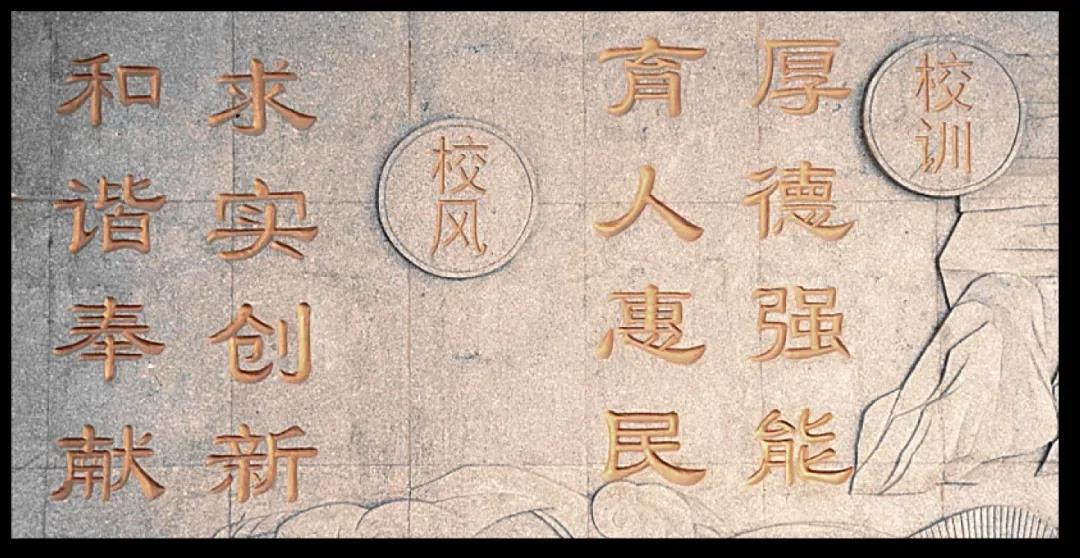 校训
厚德强能
育人惠民
校风
求实创新
和谐奉献